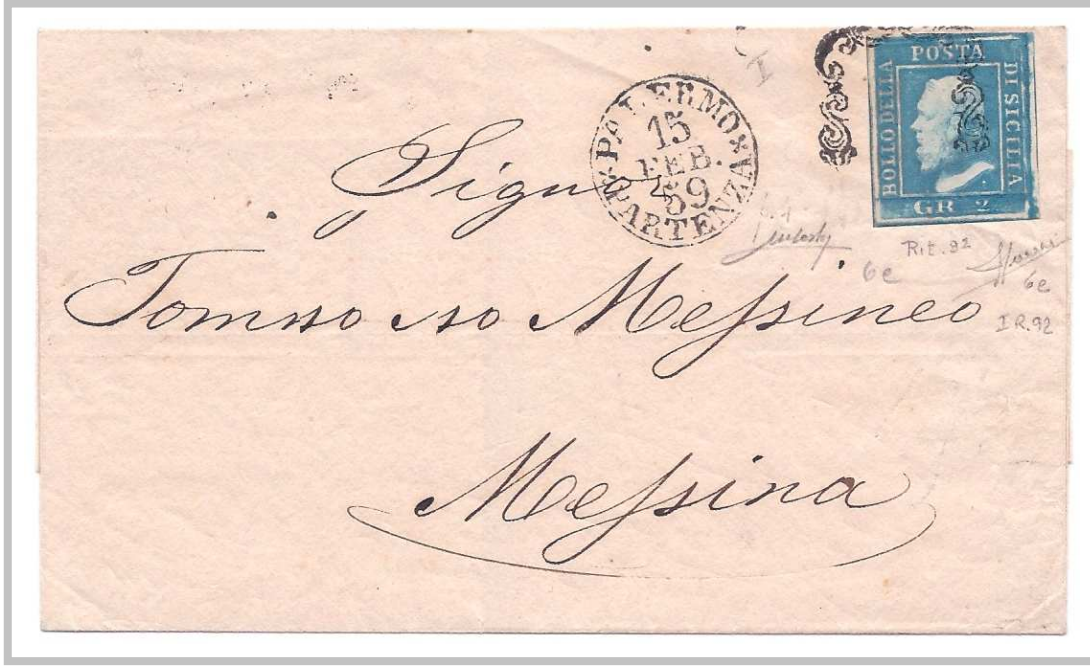 POSTA
BOLLO DELLA
DI SICILIA
GR 2.
PALERMO
15
FEB.
59
PARTENZA
I
Sign
Rit. 92
6e
6e
I R.92
Tommaso Messineo
Messina